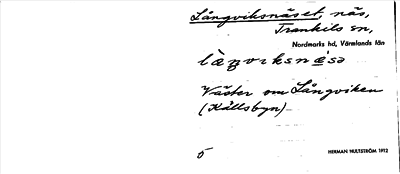 Långviksnäset, näs,
Trankils sn,
Nordmarks hd, Värmlands län
làŋviksnǽ̣sə
Väster om Långviken
(Källsbyn)
5
HERMAN HULTSTRÖM 1912